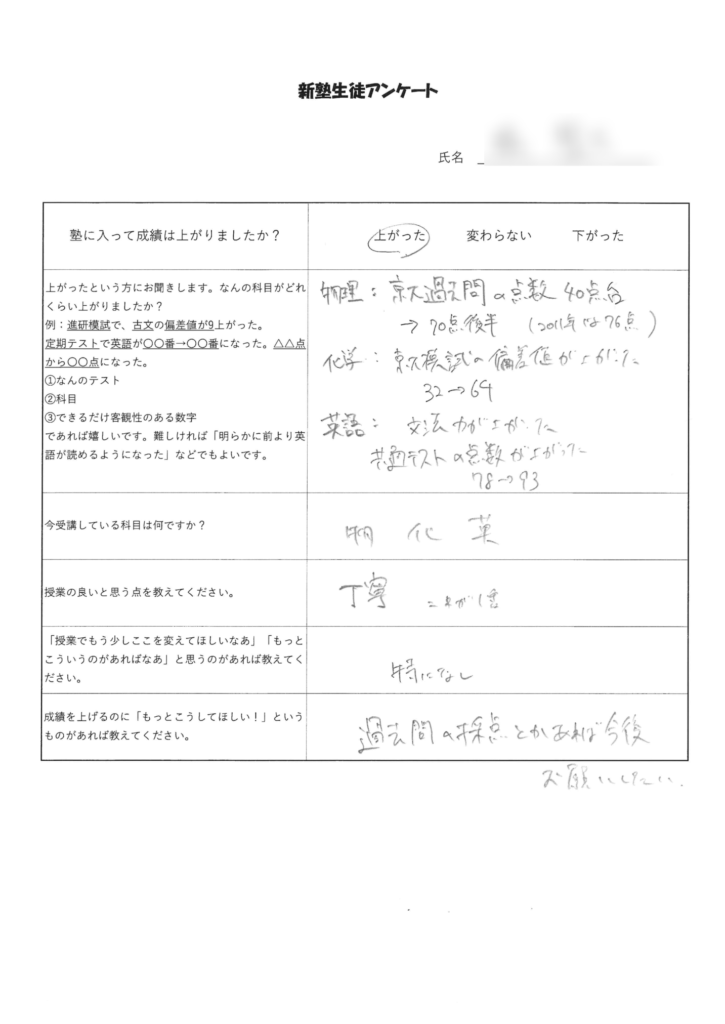 新塾生徒アンケート
氏名
塾に入って成績は上がりましたか？
上がった 変わらない 下がった
上がったという方にお聞きします。なんの科目がどれ
くらい上がりましたか？
例：進研模試で、古文の偏差値が9上がった。
定期テストで英語が〇〇番→〇〇番になった。△△点
から〇〇点になった。
①なんのテスト
②科目
③できるだけ客観性のある数字
であれば嬉しいです。難しければ「明らかに前より英
語が読めるようになった」などでもよいです。
物理：京大過去問の点数 40点台
→ 70点後半 （2011年は76点）
化学：京大模試の偏差値が上がった
32→64
英語： 文法力が上がった
共通テストの点数が上がった
78→93
今受講している科目は何ですか？
物 化 英
授業の良いと思う点を教えてください。
丁寧
「授業でもう少しここを変えてほしいなあ」「もっと
こういうのがあればなあ」と思うのがあれば教えてく
ださい。
特になし
成績を上げるのに「もっとこうしてほしい！」という
ものがあれば教えてください。
過去問の採点とかあれば今後
お願いしたい.